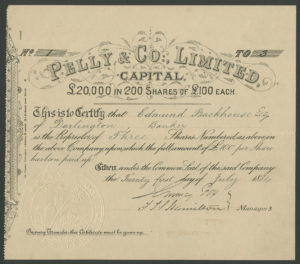 No. 1 TO 3
PELLY & CO. LIMITED.
CAPITAL.
£20,000 IN 200 SHARES OF £100 EACH.
This is to Certify that Edmund Backhouse Esq
of Darlington Banker
is the Proprietor of Three Shares Numbered as above in
the above Company upon which the full amount of £100 per Share
has been paid up.
Given under the Common Seal of the said Company
the Twenty first day of July
Managers